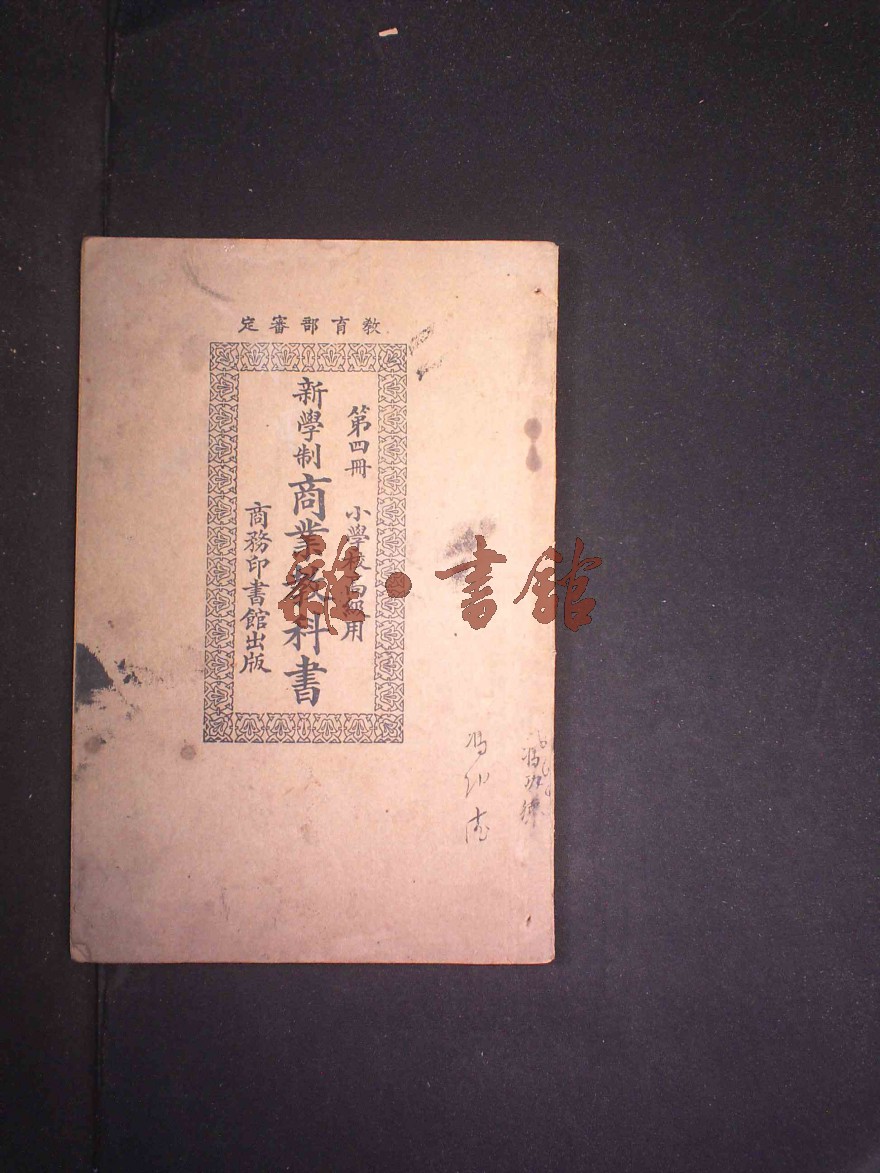 教育部審定
第四冊 小學校高級用
新學制商業教科書
商務印書館出版
雜·書館